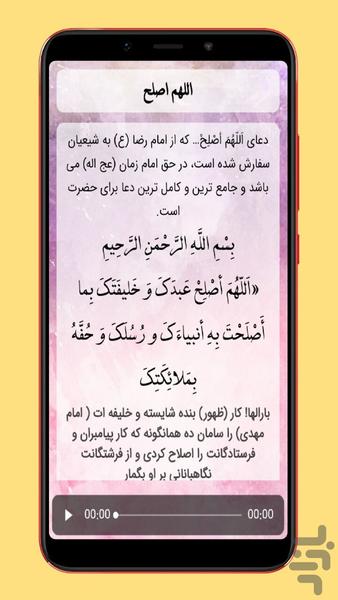 اللهم اصلح
دعای اَللّهُمَ أصْلِحْ... که از امام رضا (ع) به شیعیان
سفارش شده است، در حق امام زمان (عج اله) می
باشد و جامع ترین و کامل ترین دعا برای حضرت
است.
بِسْمِ اللَّهِ الرَّحْمَنِ الرَّحِيمِ
«اَللّهُمَ أصْلِحْ عَبدَکَ وَ خَلیفَتَکَ بِما
أَصْلَحْتَ بِهِ أنبیاءَکَ وَ رُسُلَکَ وَ حُفَّهُ
بِمَلائِکَتِکَ
بارالها! کار (ظهور) بنده شایسته و خلیفه ات ( امام
مهدی) را سامان ده همانگونه که کار پیامبران و
فرستادگانت را اصلاح کردی و از فرشتگانت
نگاهبانانی بر او بگمار
00:00 00:00
بازار